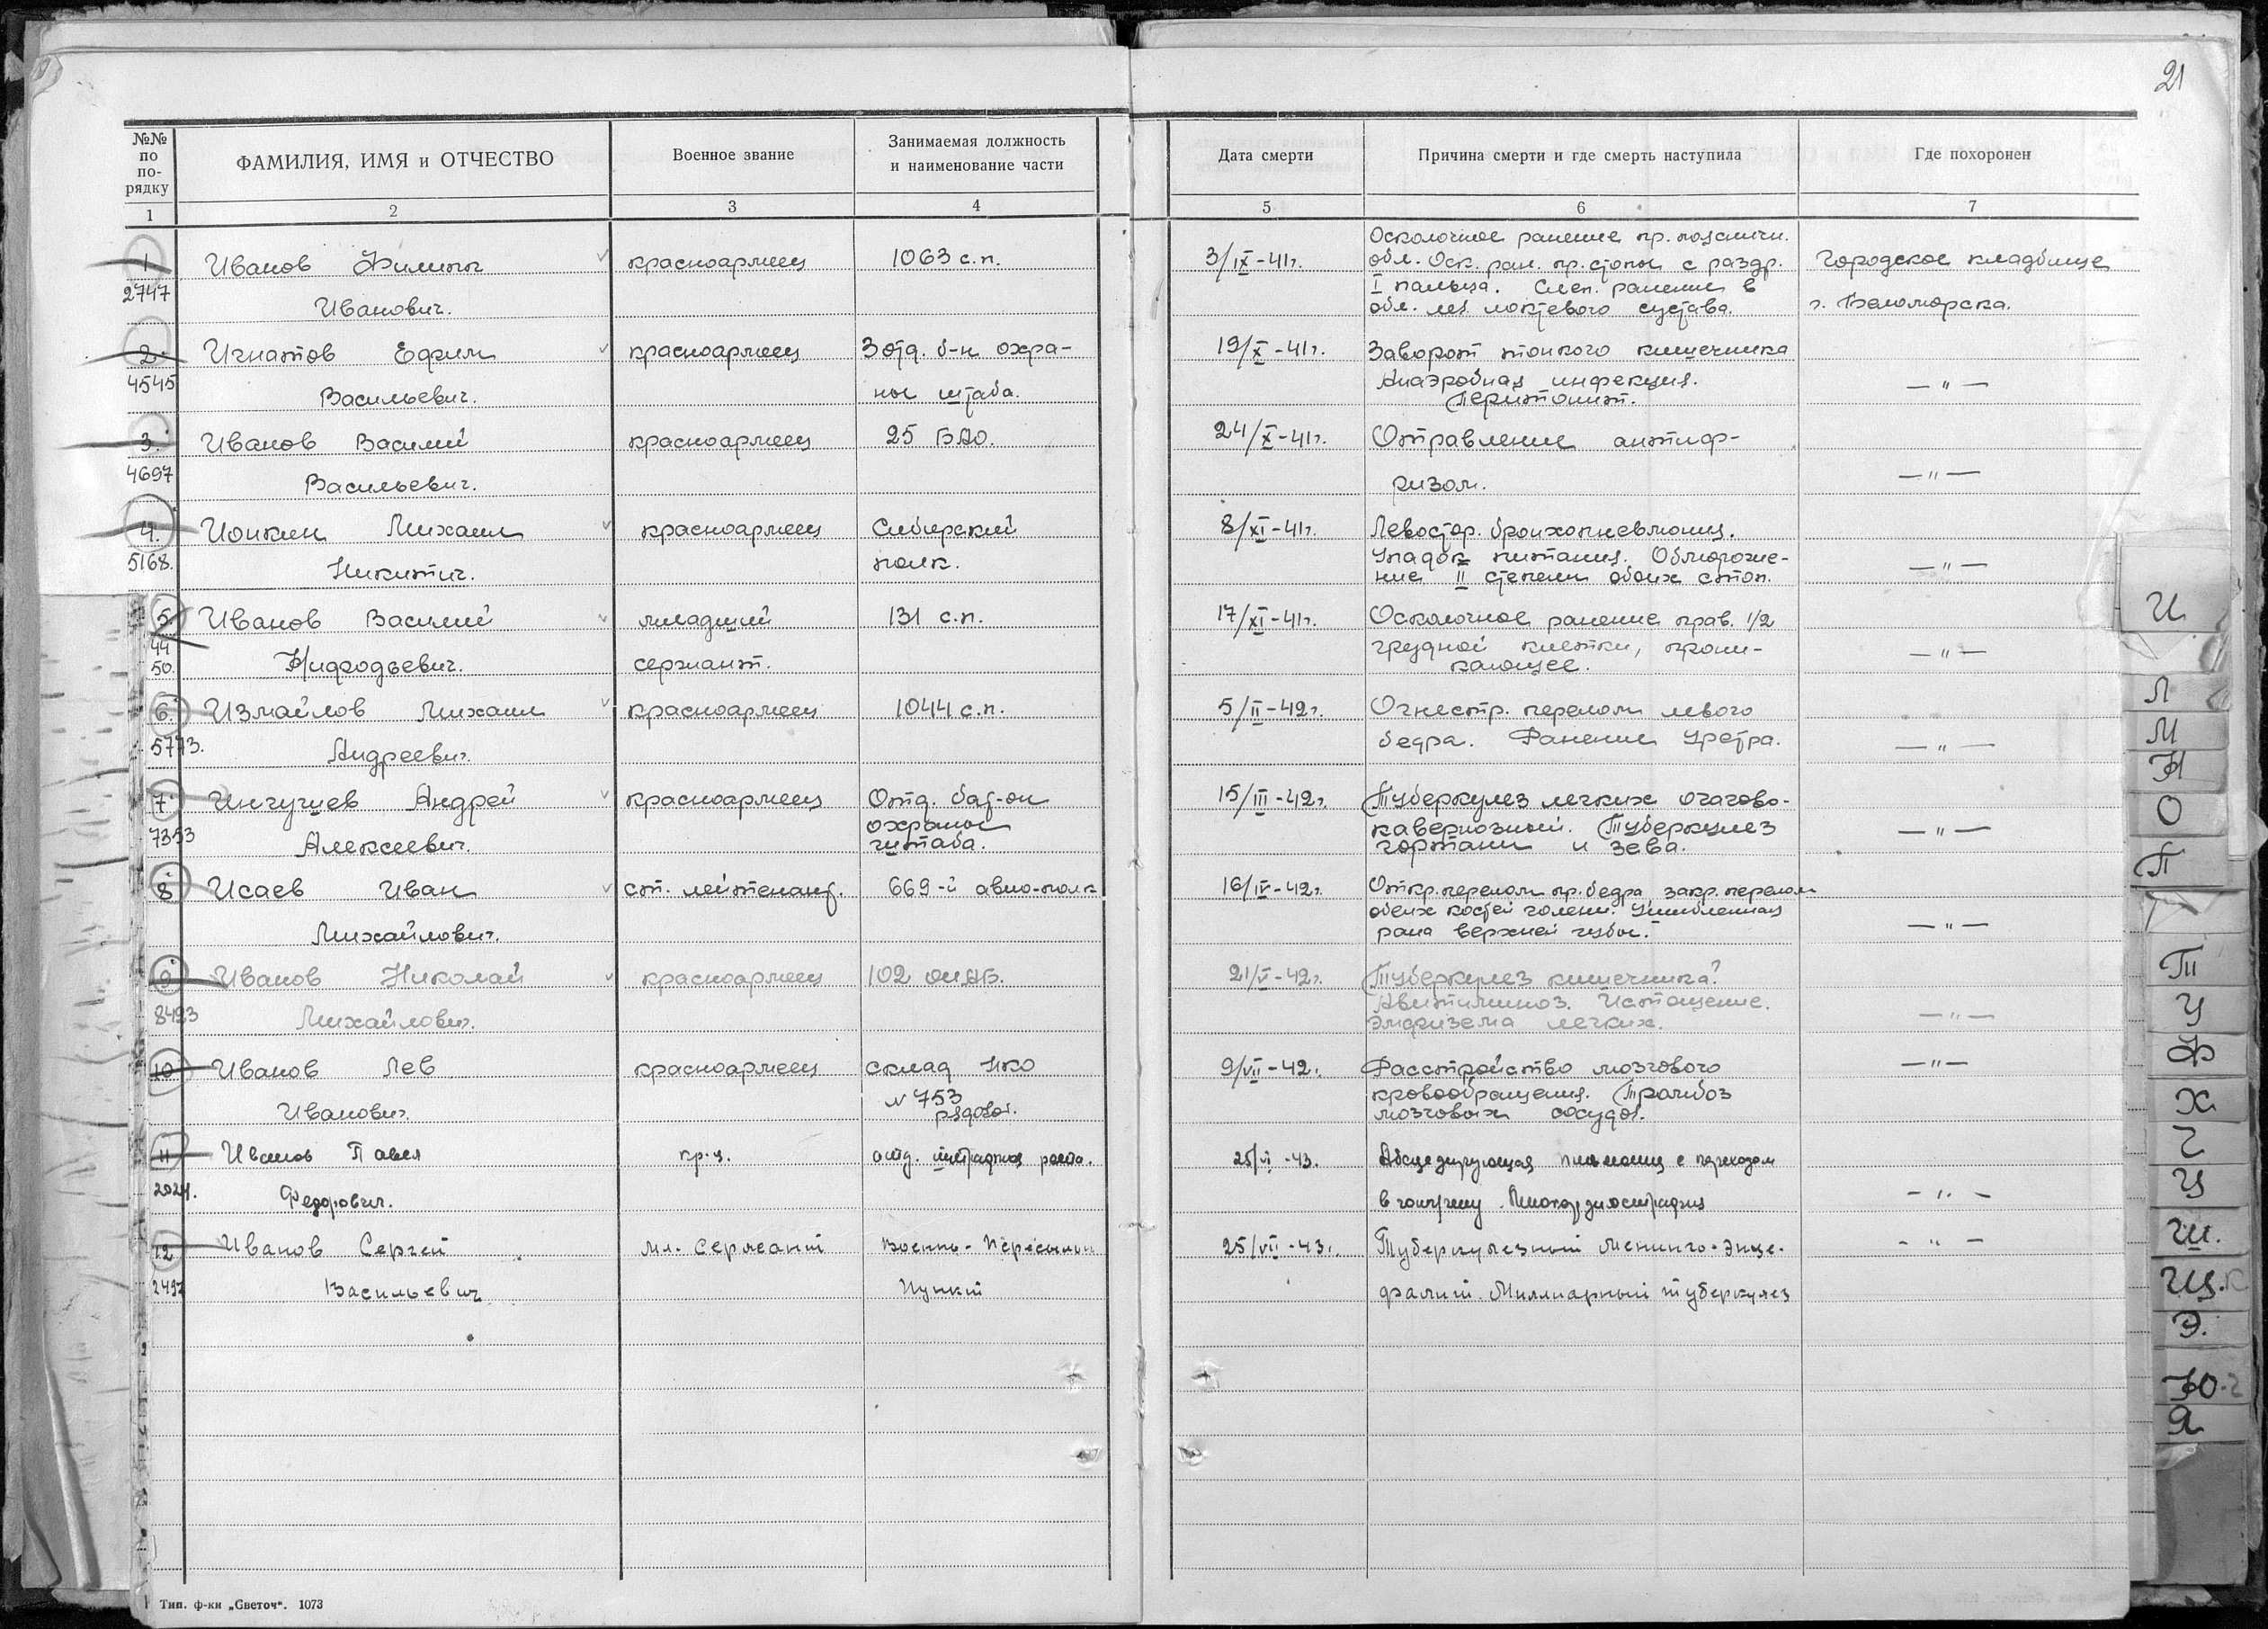 21
№№ по по-рядку
ФАМИЛИЯ, ИМЯ и ОТЧЕСТВО
Военное звание
Занимаемая должность и наименование части
Дата смерти
Причина смерти и где смерть наступила
Где похоронен
1 2 3 4 5 6 7
1 Иванов Филипп красноармеец 1063 с.п. 3/IX-41г. Осколочное ранение пр. поясничн.
обл. Оск. ран. пр. стопы с раздр. Городское кладбище
2747 Иванович. I пальца. Слеп. ранение в
обл. лев. локтевого сустава. г. Беломорска.
2. Игнатов Ефим красноармеец 3 отд. б-н охра- 19/X-41г. Заворот тонкого кишечника
4545 Васильевич. ны штаба. Анаэробная инфекция. — " —
Перитонит.
3. Иванов Василий красноармеец 25 БАО. 24/X-41г. Отравление антиф-
4697 Васильевич. ризом. — " —
4. Ионкин Михаил красноармеец Сибирский 8/XI-41г. Левостор. бронхопневмония.
5168. Никитич. полк. Упадок питания. Обмороже- — " —
ние II степени обоих стоп.
5 Иванов Василий младший 131 с.п. 17/XI-41г. Осколочное ранение прав. 1/2
44 50. Нифодьевич. сержант. грудной клетки, прони- — " —
кающее.
6. Измайлов Михаил красноармеец 1044 с.п. 5/II-42г. Огнестр. перелом левого
5773. Андреевич. бедра. Ранение уретра. — " —
7. Ингушев Андрей красноармеец Отд. бат-он 15/III-42г. Туберкулез легких очагово-
7353 охраны кавернозный. Туберкулез — " —
Алексеевич. штаба. гортани и зева.
8 Исаев Иван ст. лейтенант. 669-й авио-полк 16/IV-42г. Откр. перелом пр. бедра, закр. перелом
обеих костей голени. Ушибленная
Михайлович. рана верхней губы. — " —
9 Иванов Николай красноармеец 102 ОИАБ. 21/V-42г. Туберкулез кишечника?
8493 Михайлович. Авитиминоз. Истощение. — " —
Эмфизема легких.
10 Иванов Лев красноармеец склад НКО 9/VII-42г. Расстройство мозгового — " —
N 753 кровообращения. Тромбоз
Иванович. рядовой. мозговых сосудов.
11 Иванов Павел кр-ц. отд. штрафная рота. 25/VI-43. Абсцедирующая пневмония с переходом
2024. Федорович. в гангрену. Миокардиострафия — " —
12 Иванов Сергей мл. сержант Военно-Пересыльн 25/VII-43г. Туберкулезный менинго-энце- — " —
2497 Васильевич Пункт фалит. Миллиарный туберкулез
Тип. ф-ки „Светоч“. 1073
И
Л
М
Н
О
П
Т
У
Ф
Х
Ч
Ц
Ш.
Щ.
Э.
Ю
Я